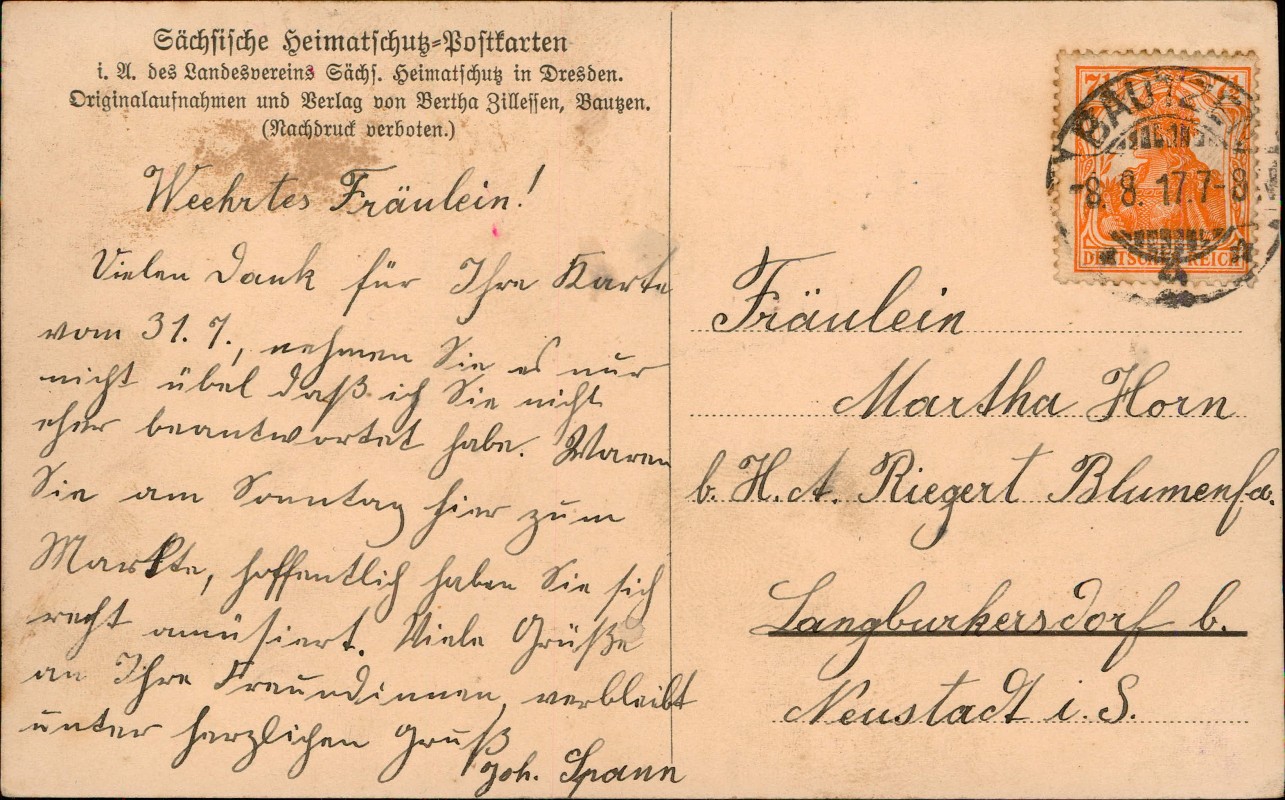 Sächsische Heimatschutz=Postkarten
i. A. des Landesvereins Sächs. Heimatschutz in Dresden.
Originalaufnahmen und Verlag von Bertha Zillessen, Bautzen.
(Nachdruck verboten.)
Weehrtes Fräulein!
Vielen Dank für Ihre Karte
vom 31. 7., nehmen Sie es nur
nicht übel daß ich Sie nicht
eher beantwortet habe. Waren
Sie am Sonntag hier zum
Markte, hoffentlich haben Sie sich
recht amüsiert. Viele Grüße
an Ihre Freundinnen, verbleibt
unter herzlichen Gruß
Joh. Spann
BAUTZEN
-8. 8. 17. 7-8
DEUTSCHES REICH
Fräulein
Martha Horn
b. H. A. Riegert Blumenfa.
Langburkersdorf b.
Neustadt i. S.